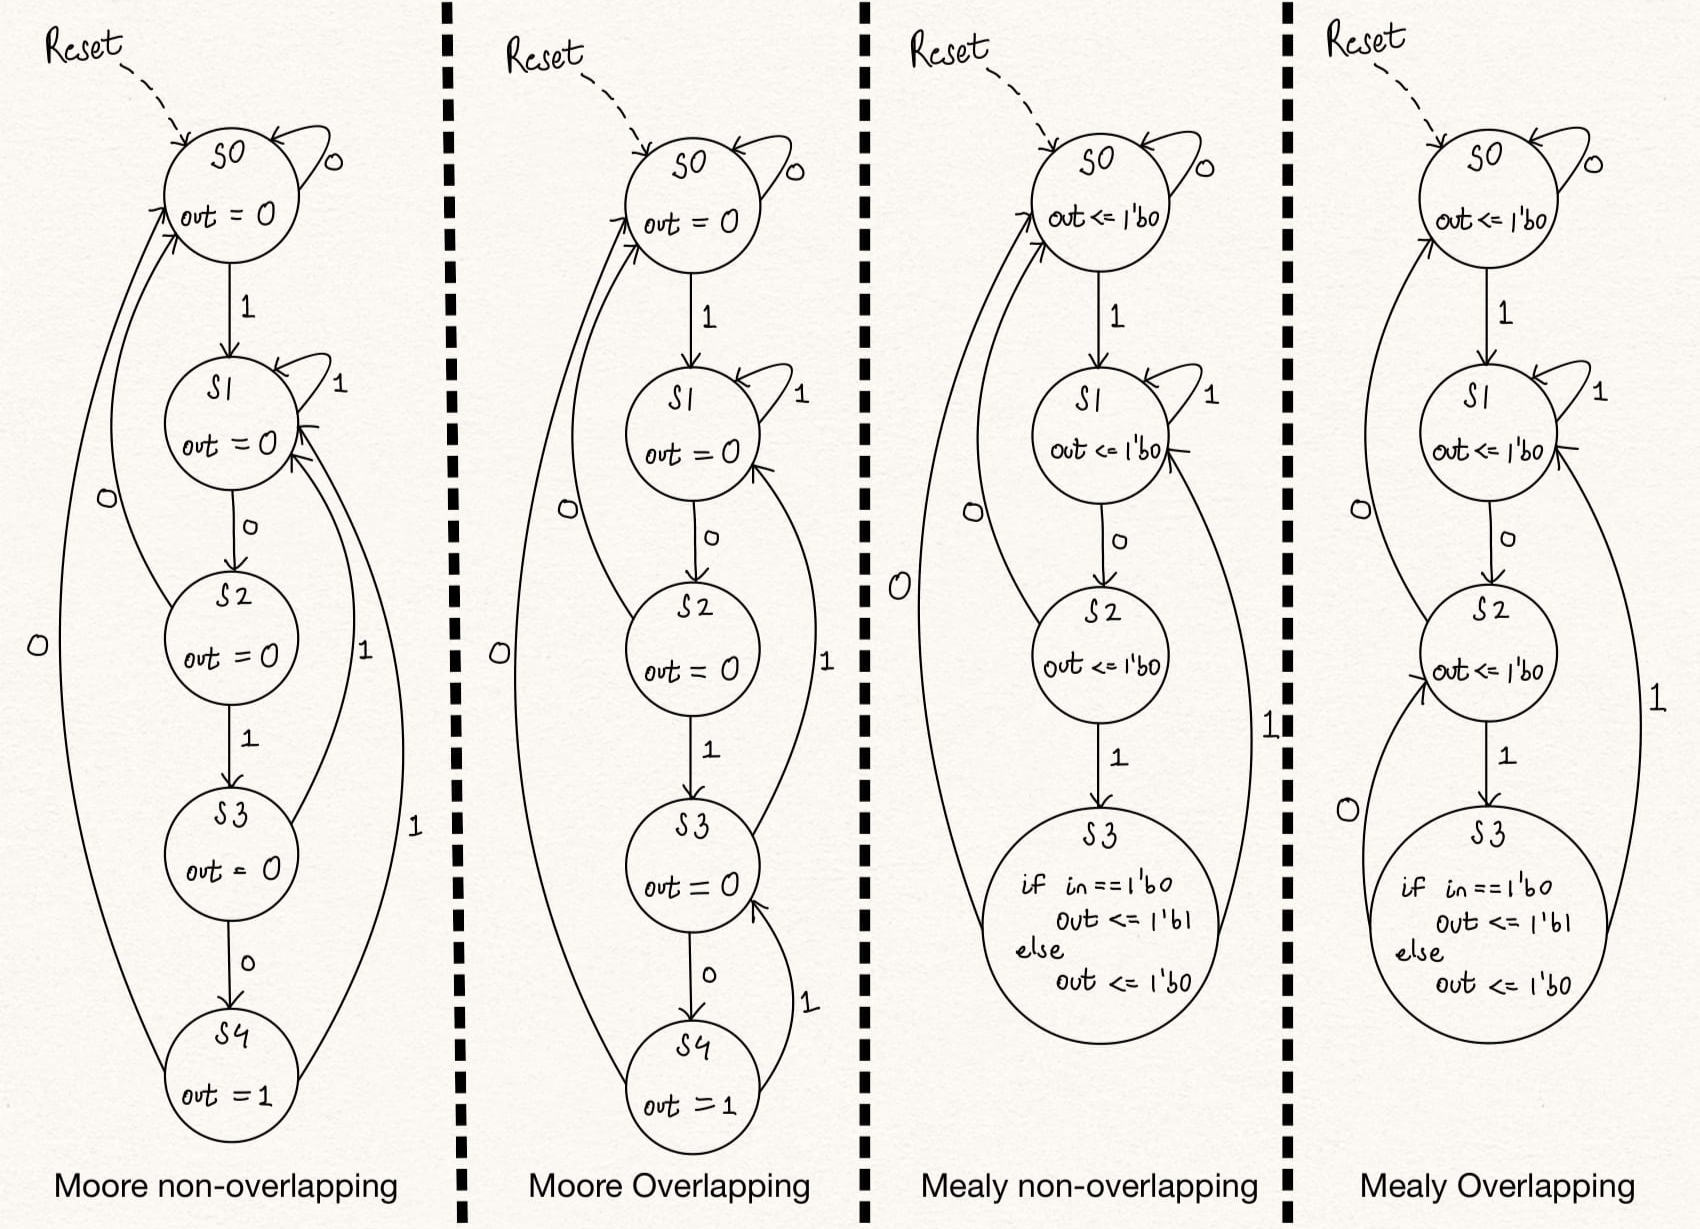 Reset
S0
0
out = 0
1
S1
1
out = 0
0
0
S2
out = 0
0
1
1
S3
out = 0
1
0
S4
out = 1
Moore non-overlapping
Reset
S0
0
out = 0
1
S1
1
out = 0
0
0
S2
out = 0
0
1
1
S3
out = 0
0
1
S4
out = 1
Moore Overlapping
Reset
S0
0
out <= 1'b0
1
S1
1
out <= 1'b0
0
0
0
S2
out <= 1'b0
1
1
S3
if in == 1'b0
out <= 1'b1
else
out <= 1'b0
Mealy non-overlapping
Reset
S0
0
out <= 1'b0
1
S1
1
out <= 1'b0
0
0
S2
out <= 1'b0
1
1
0
S3
if in == 1'b0
out <= 1'b1
else
out <= 1'b0
Mealy Overlapping